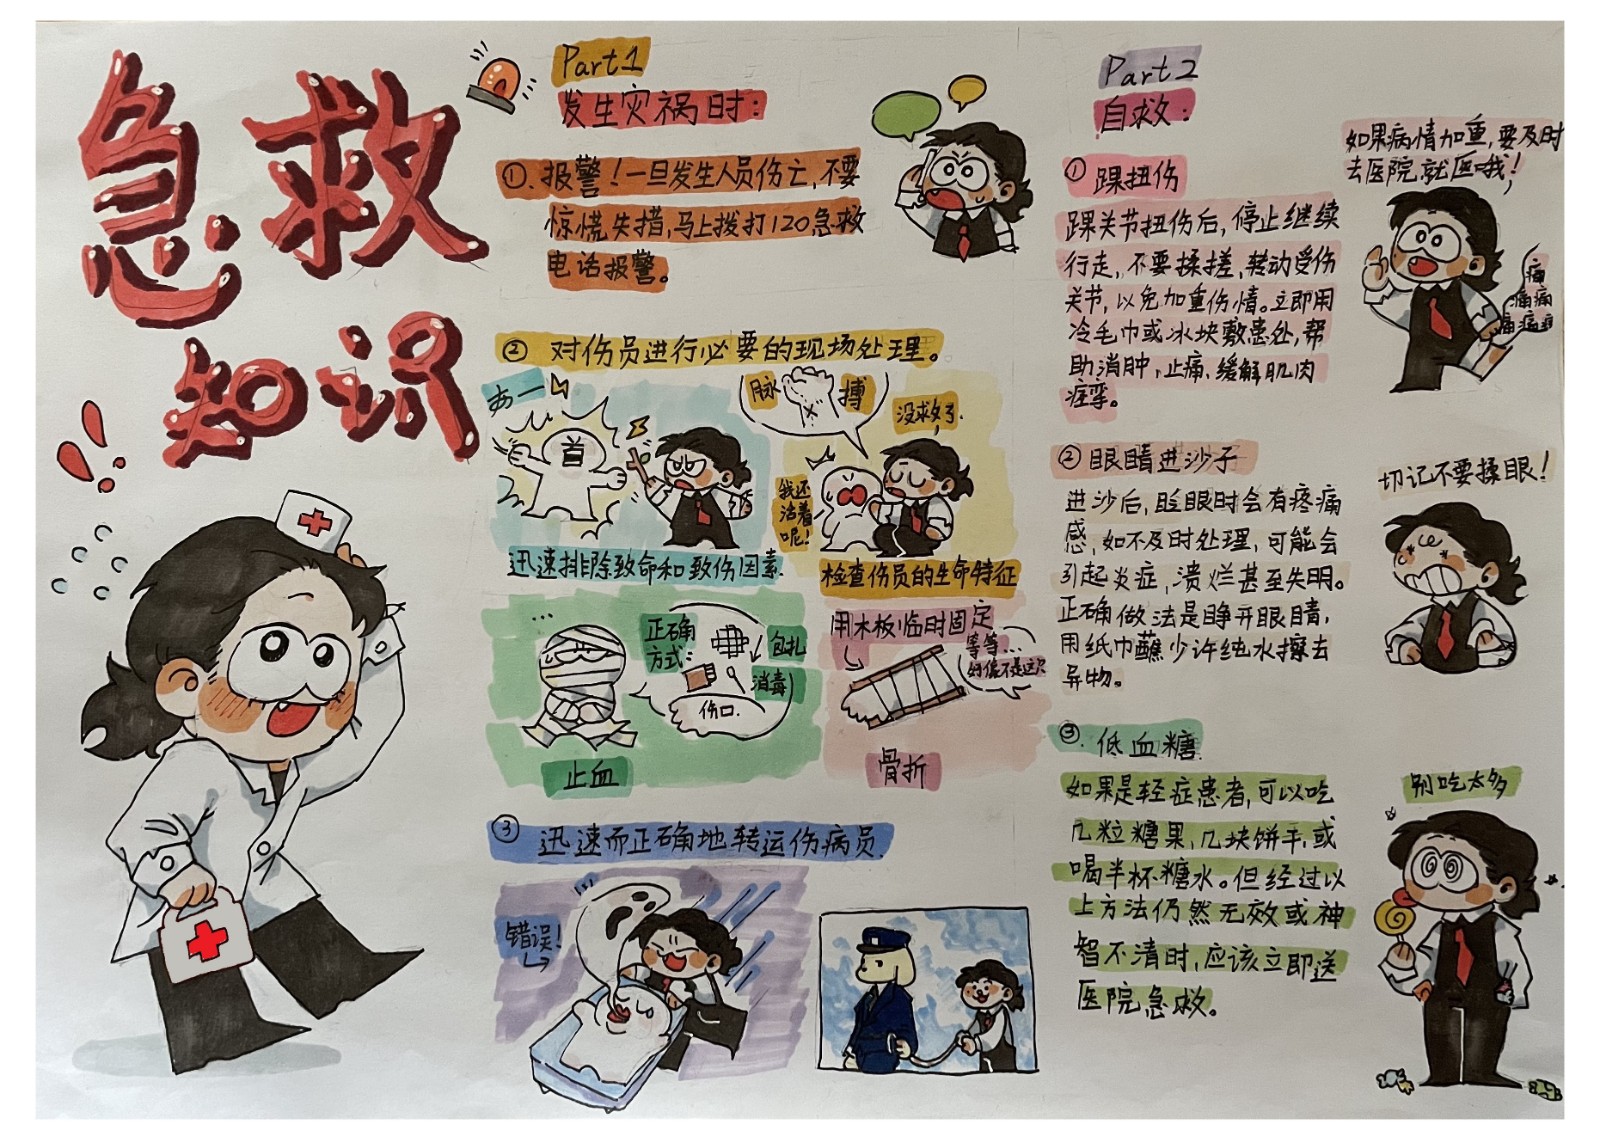 急救
知识
Part1
发生灾祸时：
①.报警！一旦发生人员伤亡,不要
惊慌失措,马上拨打120急救
电话报警。
② 对伤员进行必要的现场处理。
あー
首
迅速排除致命和致伤因素.
脉搏
没救了.
我还
活着
呢!
检查伤员的生命特征
...
正确
方式:
包扎
消毒
伤口.
止血
用木板临时固定
等等...
好像不是这只
骨折
③ 迅速而正确地转运伤病员.
错误!
Part2
自救：
① 踝扭伤
踝关节扭伤后,停止继续
行走,不要揉搓,转动受伤
关节,以免加重伤情。立即用
冷毛巾或冰块敷患处,帮
助消肿,止痛,缓解肌肉
痉挛。
如果病情加重,要及时
去医院就医哦!
痛
痛痛
痛痛痛
② 眼睛进沙子
进沙后,眨眼时会有疼痛
感,如不及时处理,可能会
引起炎症,溃烂甚至失明。
正确做法是睁开眼睛,
用纸巾蘸少许纯水擦去
异物。
切记不要揉眼!
③.低血糖
如果是轻症患者,可以吃
几粒糖果,几块饼干,或
喝半杯糖水。但经过以
上方法仍然无效或神
智不清时,应该立即送
医院急救。
别吃太多